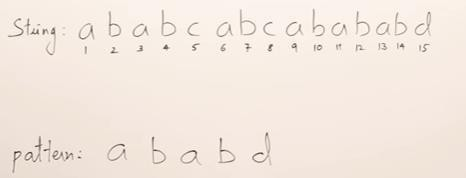 String: a b a b c a b c a b a b a b d
1 2 3 4 5 6 7 8 9 10 11 12 13 14 15
pattern: a b a b d